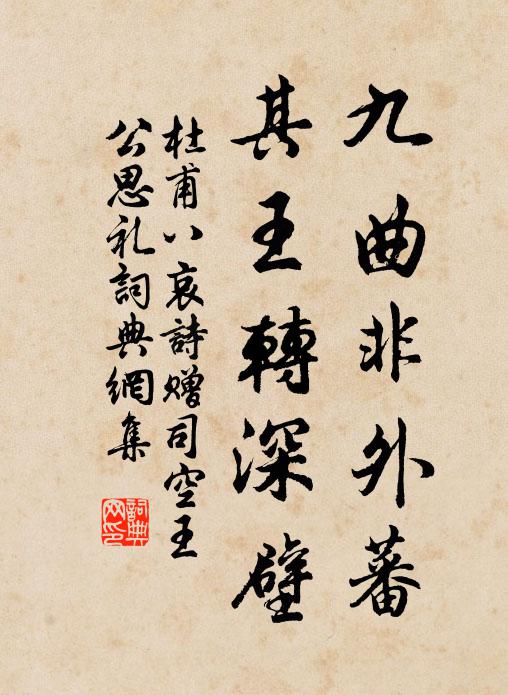 九曲非外蕃
其王轉深壁
杜甫八哀詩赠司空王
公思礼詞典網集
詞典网印